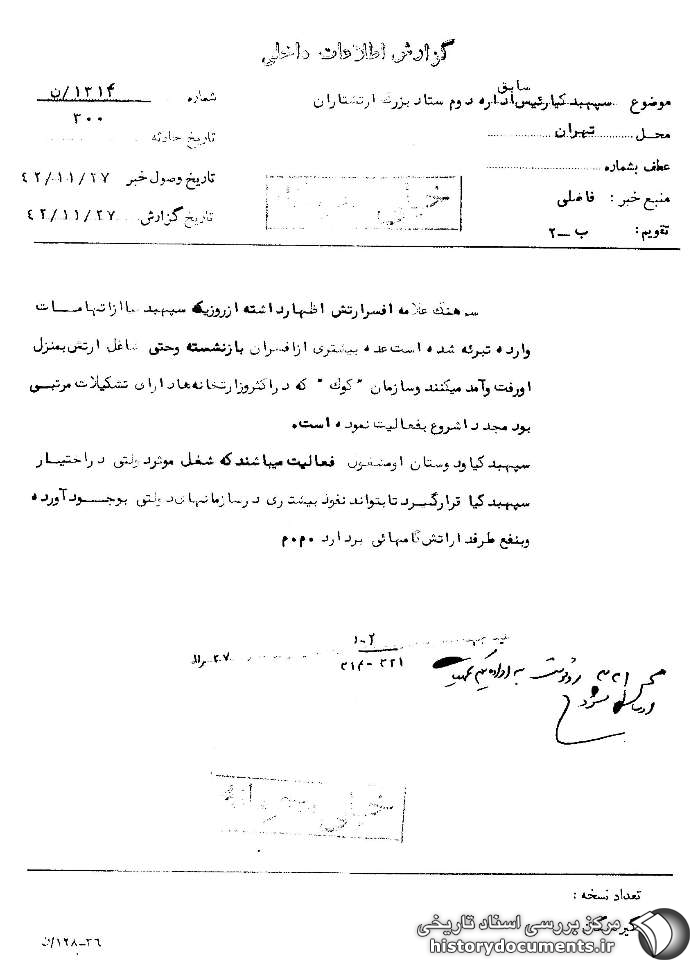 گزارش اطلاعات داخلی
موضوع سپهبد کیا رئیس سابق اداره دوم ستاد بزرگ ارتشتاران
شماره ۱۳۱۴/ن
۳۰۰
محل تهران
تاریخ حادثه
عطف بشماره
تاریخ وصول خبر ۴۲/۱۱/۲۷
منبع خبر : فاضلی
تاریخ گزارش ۴۲/۱۱/۲۷
تقویم: ب -۲
خیلی محرمانه
سرهنگ علامه افسر ارتش اظهار داشته از روزیکه سپهبد کیا از اتهامات
وارده تبرئه شده است عده بیشتری از افسران بازنشسته وحتی شاغل ارتش بمنزل
او رفت و آمد میکنند وسازمان "کوك" که در اکثر وزارتخانه‌ها دارای تشکیلات مرتبی
بود مجددا شروع بفعالیت نموده است.
سپهبد کیا ودوستان او مشغول فعالیت میباشند که شغل موثر دولتی در اختیار
سپهبد کیا قرار گیرد تا بتواند نفوذ بیشتری در سازمانهای دولتی بوجود آورده
وبنفع طرفدارانش گامهائی بردارد م۰م
۱۰۲
۲۱۴-۳۲۱
۳۲۱
رونوشت به اداره یکم
شود
خیلی محرمانه
تعداد نسخه :
گیرندگان
۳۶-۱۲۸/ن
مرکز بررسی اسناد تاریخی
historydocuments.ir